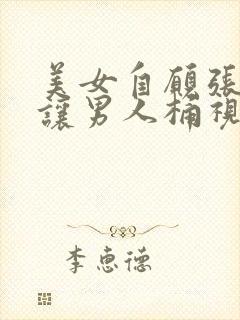 美女自願張
讓男人桶視
李惠德